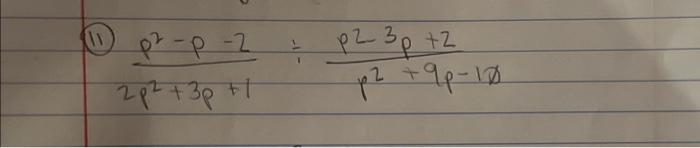 11 p² - p - 2 ÷ p2 - 3p + 2
2p² + 3p + 1 p² + 9p - 10